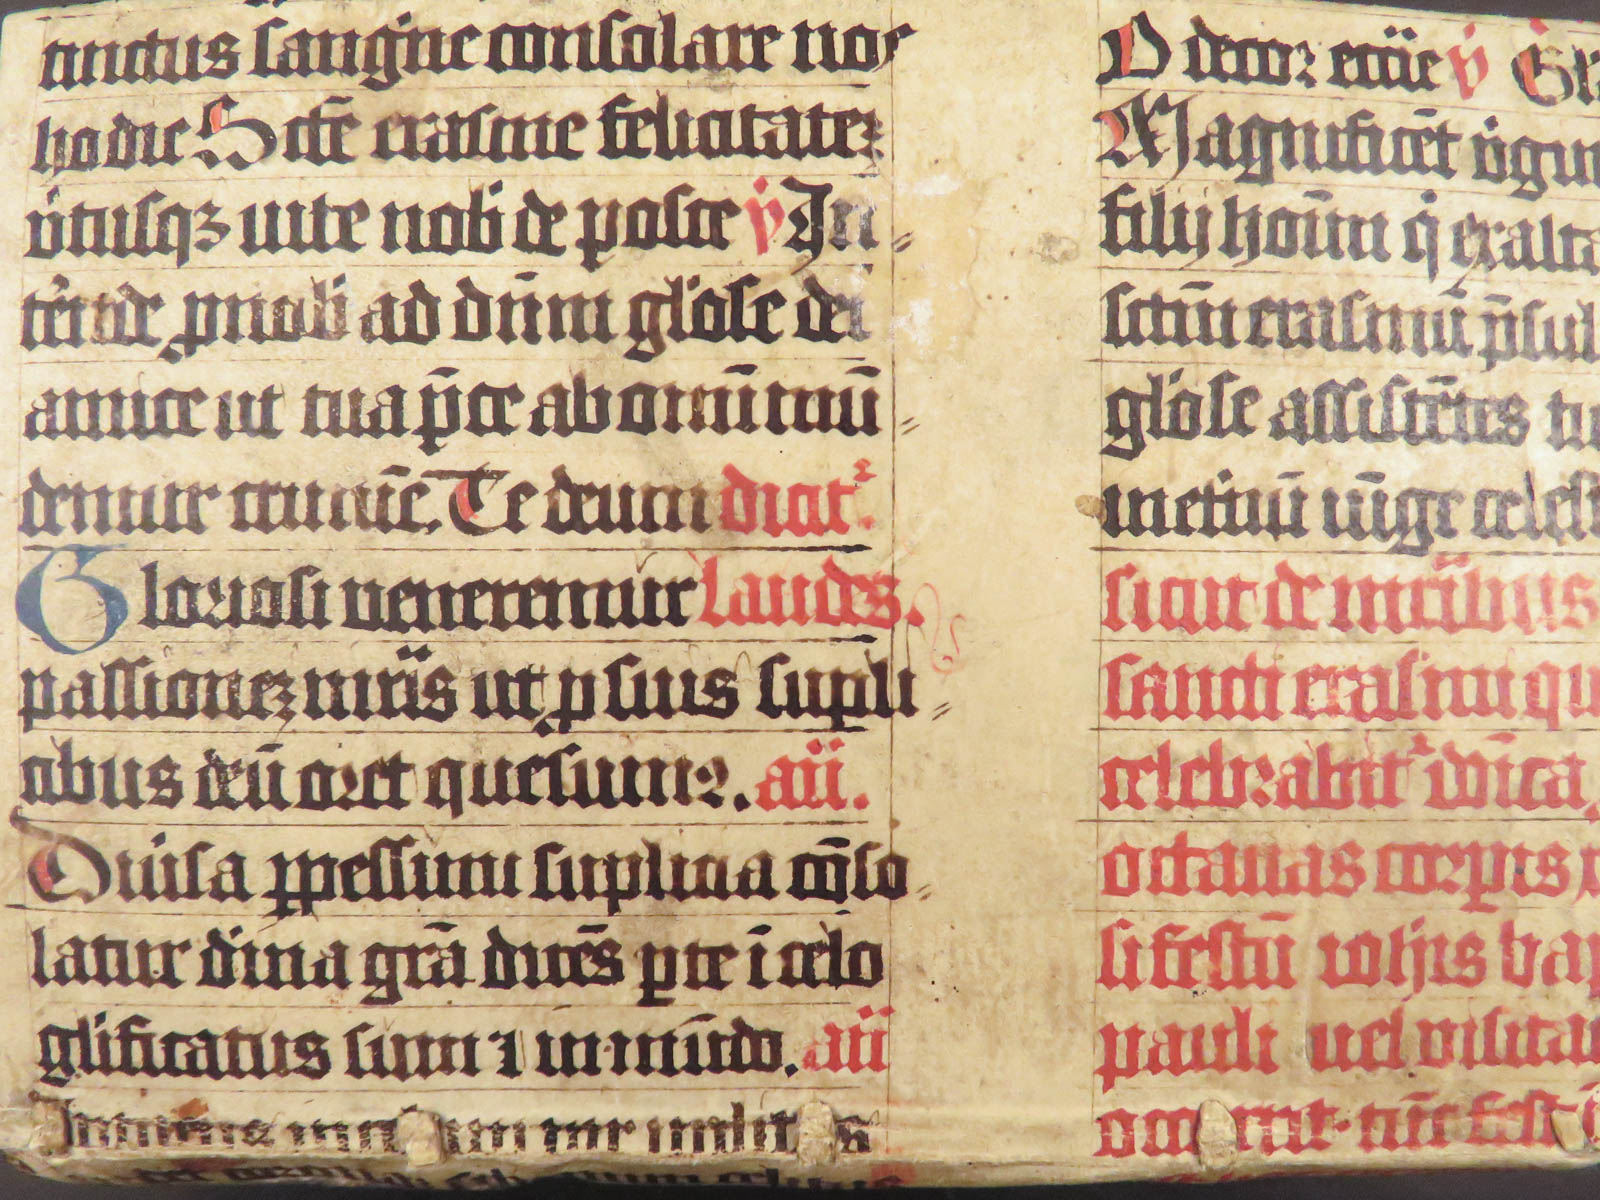 tinctus sangͥne consolare nos
hodie Scте erasme felicitatez
v̾tusqꝫ uite nobͥ de posce v̾ In⸗
tende pnobͥ ad dnm gl̾ose dei
amice ut tua p̄ce ab omī mū⸗
demur crimīe. Te deum dicit᷑.
Gloriosi veneremur Laudes.
passionez mr̄is ut p suis supli⸗
cibus deū oret quesumꝰ. aīi.
Diu̾sa ꝑpessum suplicia cōso⸗
latur diuina grā dices pte ī celo
gl̾ificatus sum ⁊ in mūdo. aīi
D decor eccīe v̾ Gl
Magnificēt v̾gin
filij hoīm q̾ exalta
sctm erasmū p̄sul
gl̾ose assistētes tu
metiuū iūge celest
sicut de mr̄ibus
sancti erasmi qu
celebrabit᷑ dn̄ica
octauas corpis
si festū iohīs bap
pauli uel visitat
tūc fest